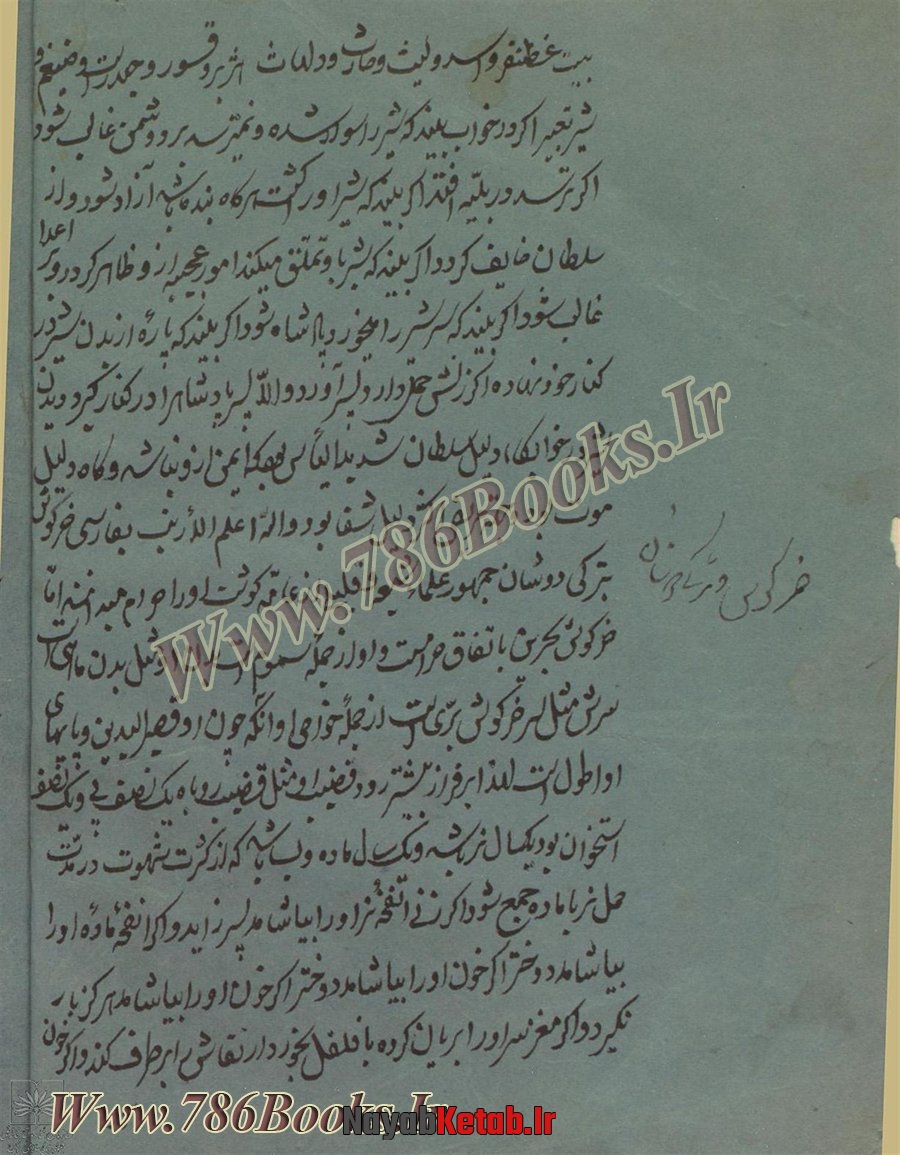 بیت غظنفر و اسد و لیث و حارث و دلهاث اثر بر و قسور و حیدر است و ضیغم و
شیر تعبیر اکر در خواب بیند که شیر را سوار شده و نمیترسد بر دوشمن غالب شود
اکر بترسد در بلیّه افتد اکر بیند که شیر او را کشت هرکاه بنده باشد آزاد شود و از
سلطان خایف کردد اکر بیند که شیر با و تملّق میکند امور عجیبه از و ظاهر کردد و بر اعدا
غالب شود اکر بیند که سر شیر را میخورد پادشاه شود اکر بیند که پارهٔ از بدن شیر در
کنار خود نهاده اکر زنش حمل دارد پسر آورد والّا پسر پادشاهرا در کنار کیرد و دیدن
شیر در خواب دلیل سلطان شدید البأس که ایمن از و نباشد و کاه دلیل
موت دلیل شفا بود واللّه اعلم الأرنب بفارسی خرکوش
بترکی دوشان جمهور علما کوشت او را حرام میدانند امّا
خرکوش بحری باتّفاق حرامست و او از جملهٔ سموم است بدن ماهی است
سرش مثل سر خرکوش برّی است از جملهٔ خواص او آنکه چون او قصیر الیدین و پایهای
او اطول است لهذا بر فراز بیشتر رود قضیب او مثل قضیب روباه یک نصف پی و یک نصف
استخوان بود یکسال نر باشد و یکسال ماده و بسا باشد که از کثرت شهوت در مدّت
حمل نر با ماده جمع شود اکر زنی انفخهٔ نر او را بیاشامد پسر زاید و اکر انفخهٔ مادهٔ او را
بیاشامد دختر اکر خون او را بیاشامد دختر اکر خون او را بیاشامد هرکز بار
نکیرد و اکر مغز سر او را بریان کرده با فلفل بخورد ارتعاش را برطرف کند و اکر خون
خرکوش
Www.786Books.Ir
Www.786Books.Ir
NayabKetab.ir